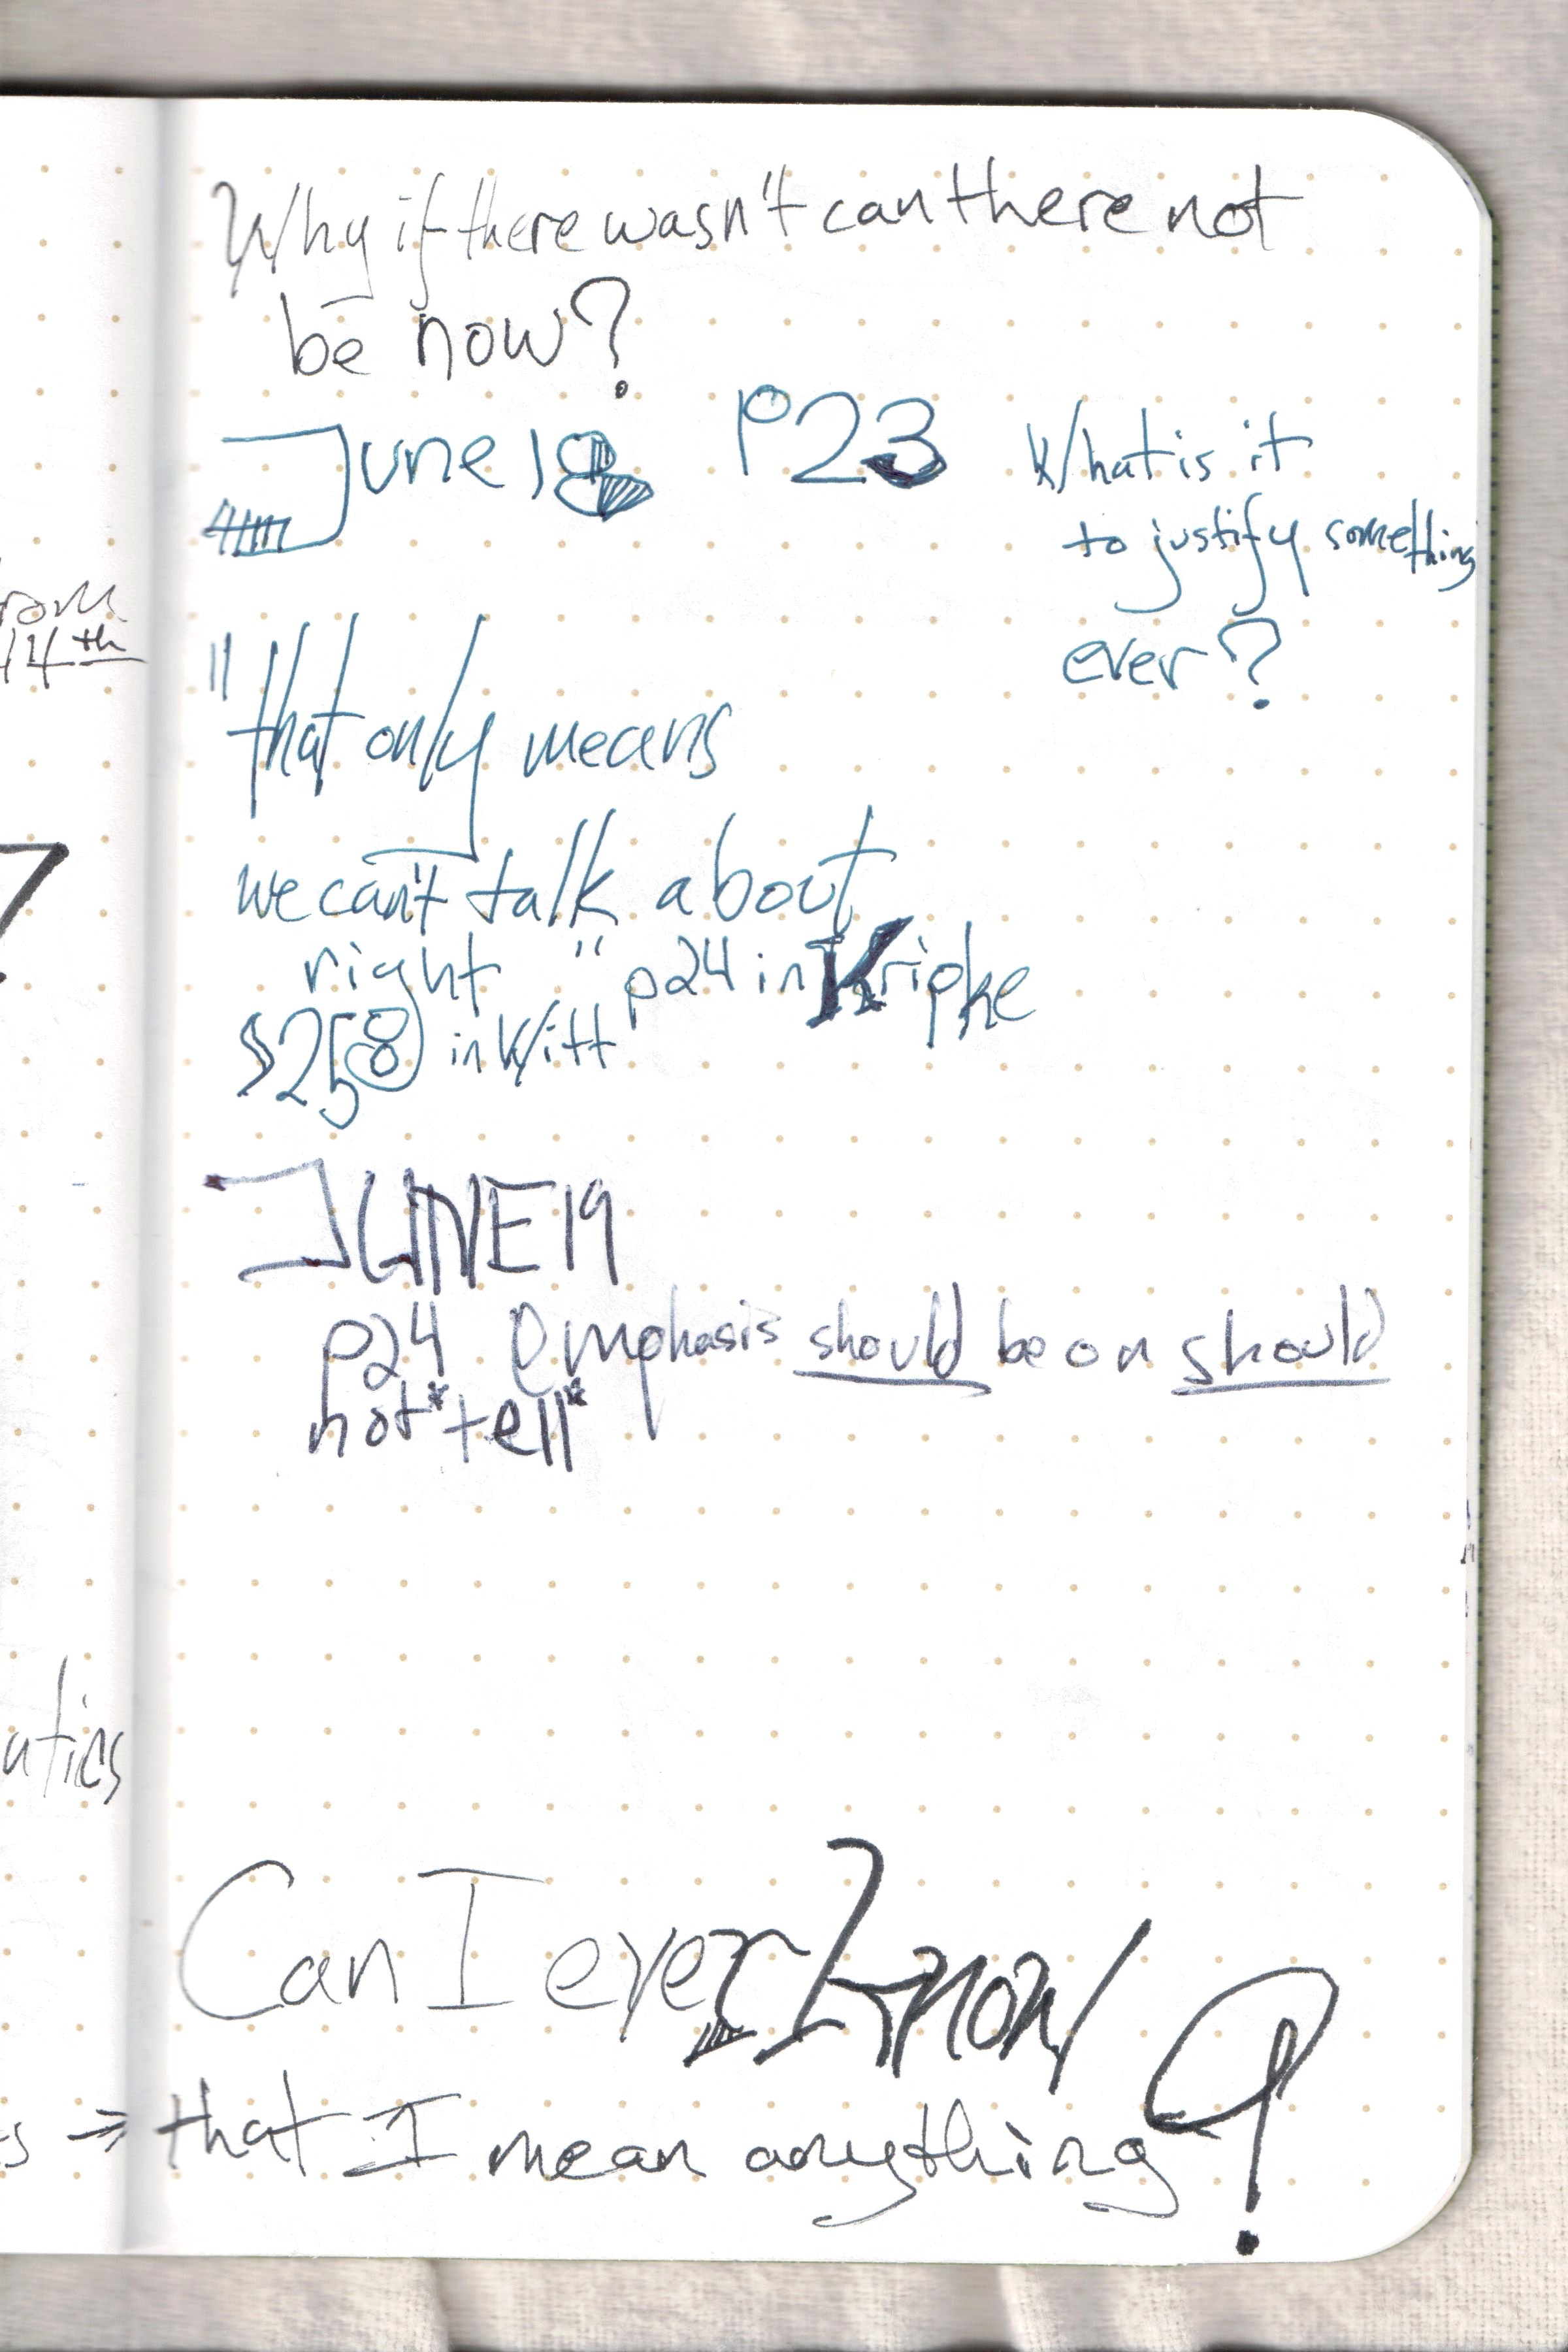 Why if there wasn't can there not
be now?
June 18 P23 What is it
to justify something
ever?
"that only means
we can't talk about
right" p24 in Kripke
§258 in Witt
JUNE 19
p24 Emphasis should be on should
not *tell*
14th
Can I ever know
⇒ that I mean anything?